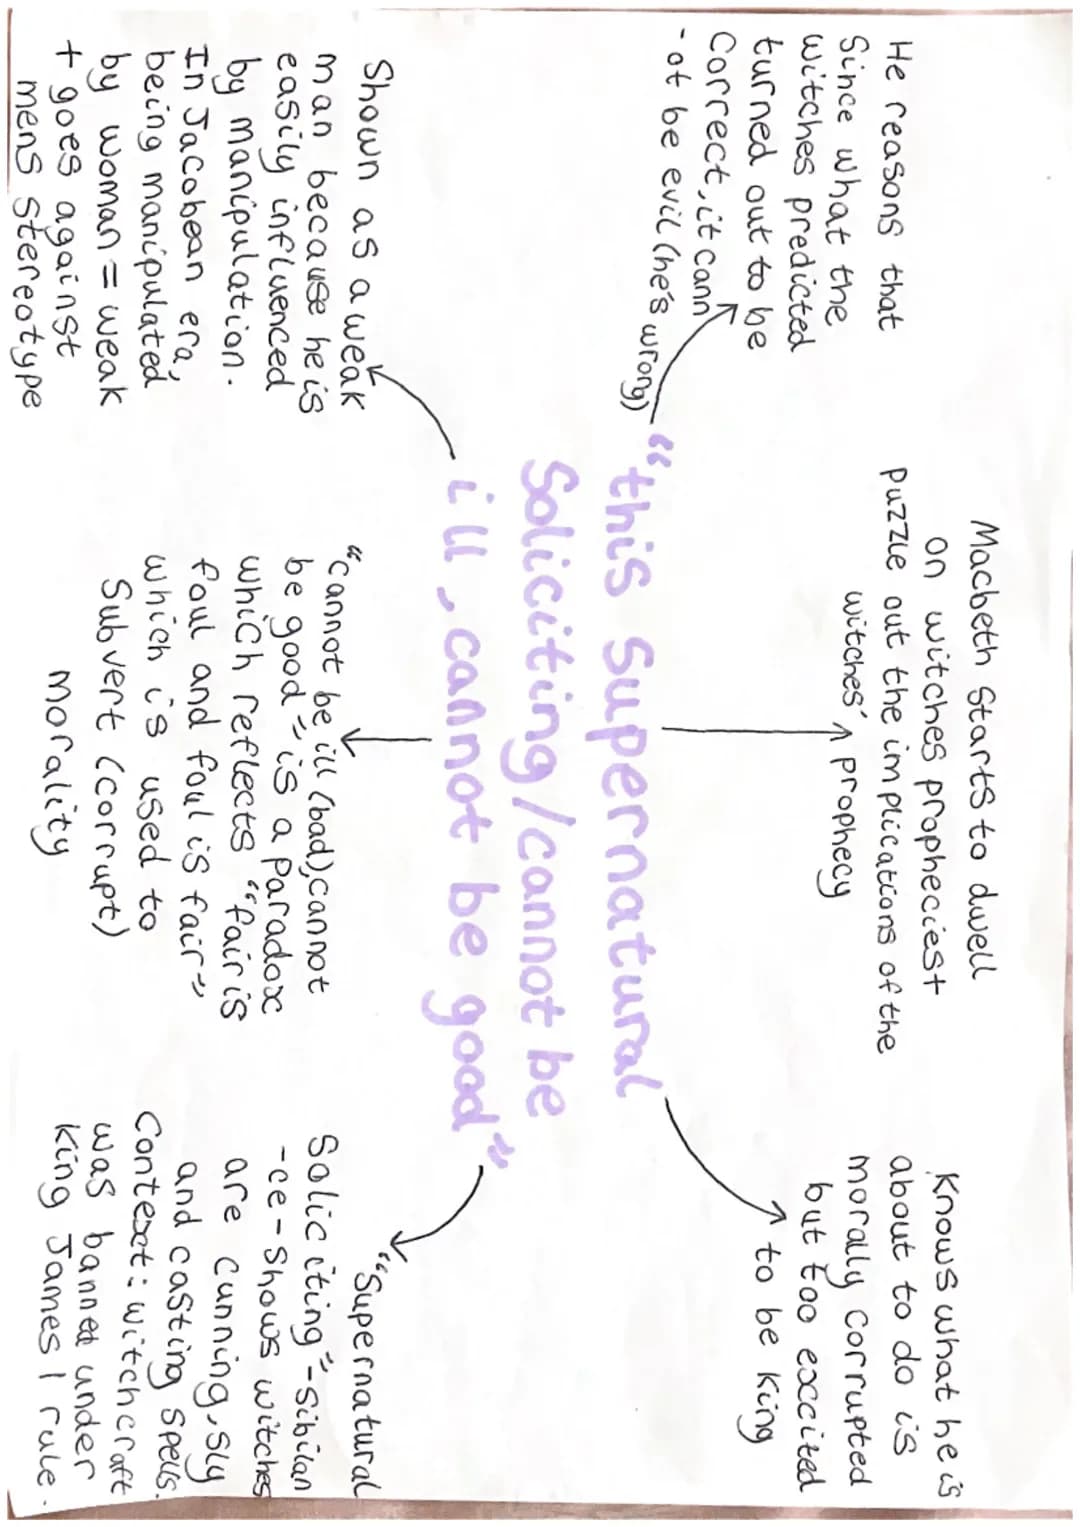 He reasons that
Since what the
witches predicted
turned out to be
Correct, it cann
-ot be evil (he's wrong)
Macbeth Starts to dwell
on witches propheciest
puzzle out the implications of the
witches' prophecy
Knows what he is
about to do is
morally corrupted
but too excited
to be king
"this Supernatural
Soliciting/cannot be
ill, cannot be good"
Shown as a weak
man because he is
easily influenced
by manipulation.
In Jacobean era,
being manipulated
by woman = weak
+ goes against
mens stereotype
"cannot be ill (bad), cannot
be good" is a paradox
which reflects "fair is
foul and foul is fair"
which is used to
Subvert (corrupt)
morality
"Supernatural
Soliciting"-Sibilan
-ce-Shows witches
are cunning, sly
and casting spells.
Context: witchcraft
was banned under
King James 1 rule.